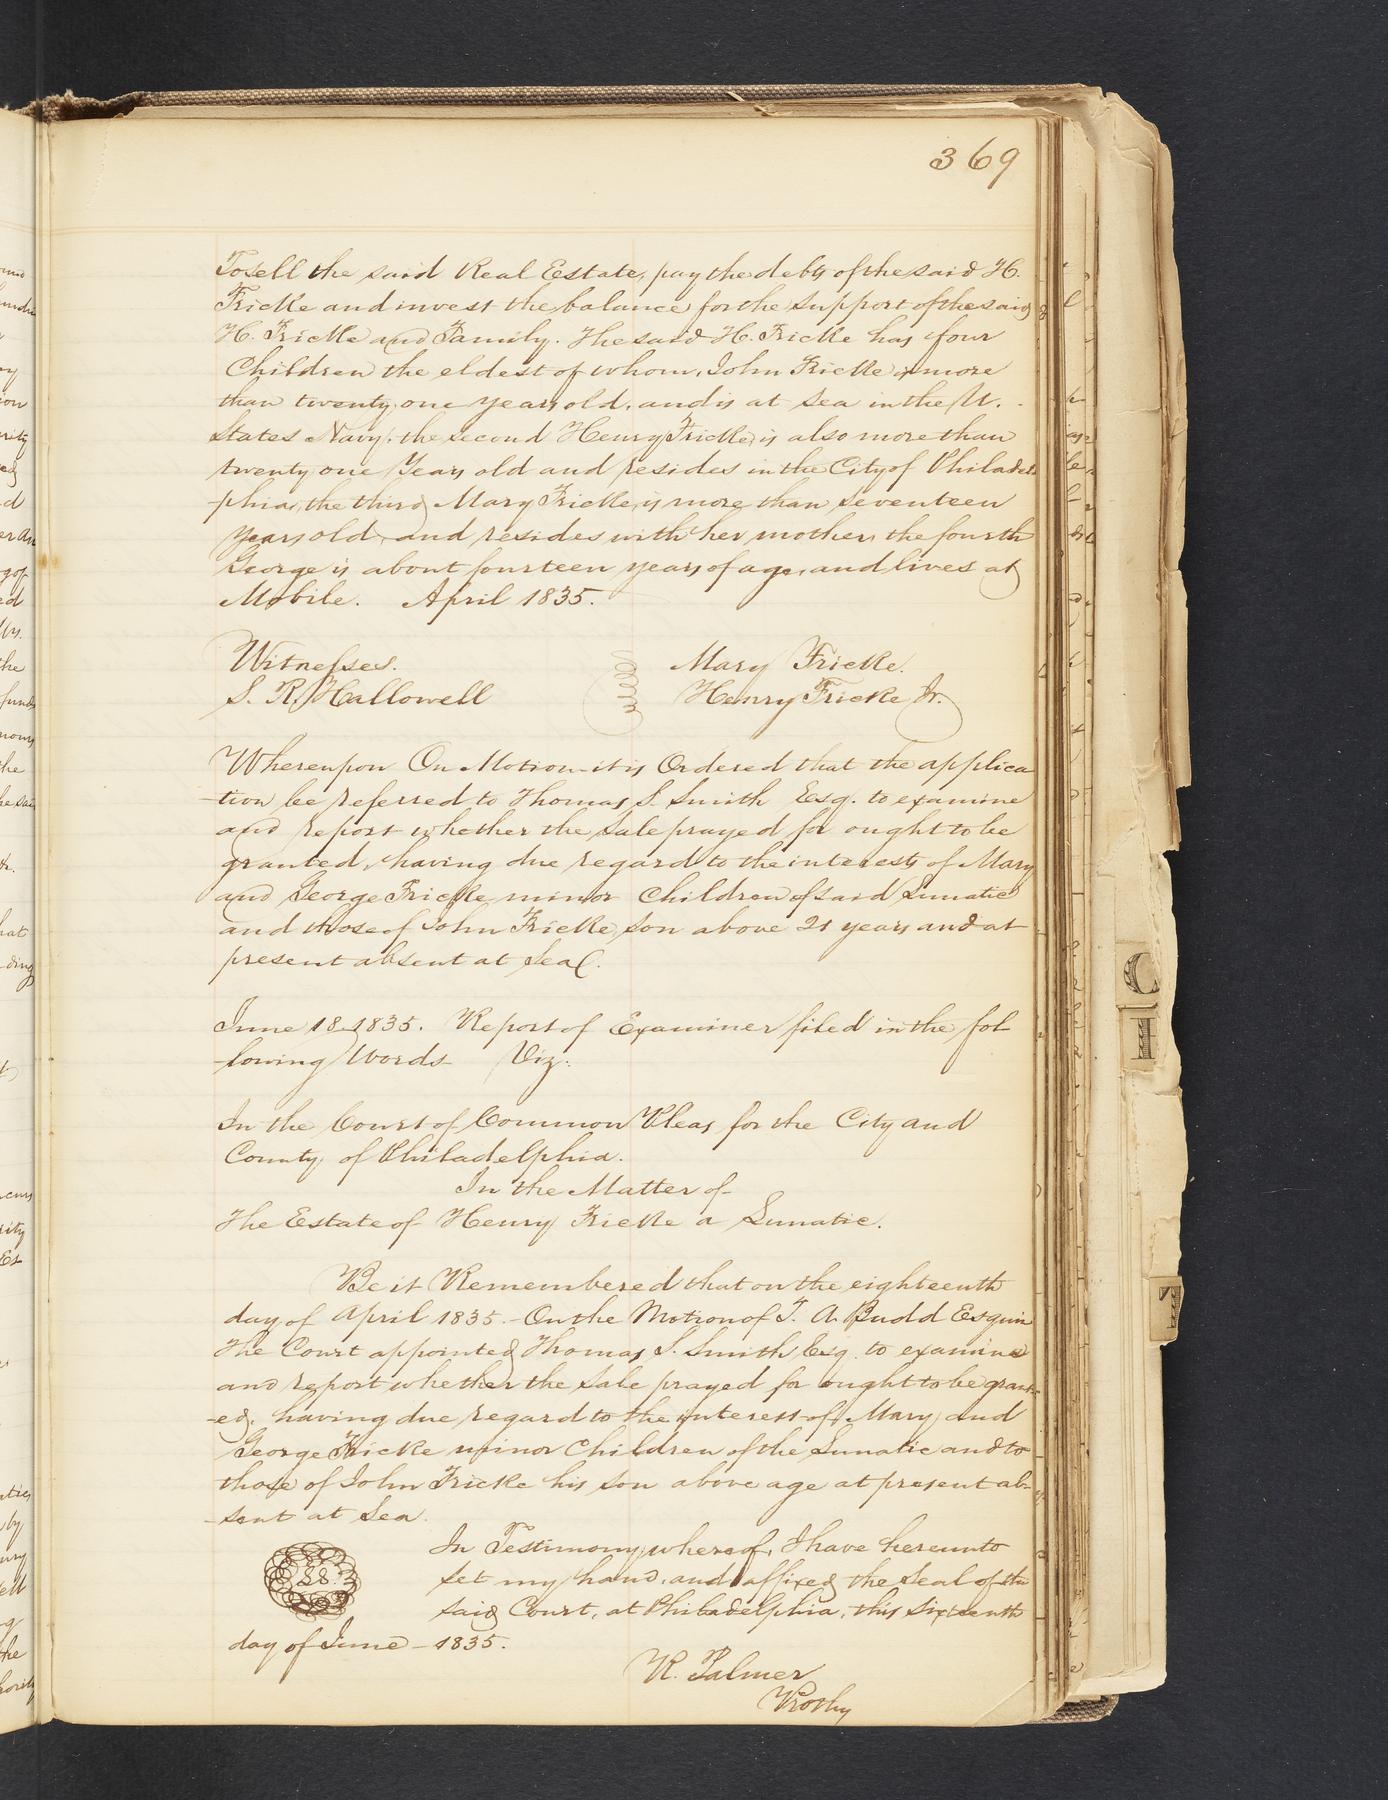 369
To sell the said Real Estate, pay the debts of the said H.
Fricke and invest the balance for the support of the said
H. Fricke and Family. The said H. Fricke has four
Children the eldest of whom, John Fricke is more
than twenty one years old, and is at sea in the U.
States Navy, the second Henry Fricke, is also more than
twenty one Years old and resides in the City of Philadel
-phia, the third Mary Fricke, is more than seventeen
years old, and resides with her mother, the fourth
George is about fourteen years of age, and lives at
Mobile. April 1835.
Witnesses. Mary Fricke.
S. R. Hallowell Henry Fricke Jr.
Whereupon On Motion it is Ordered that the applica
-tion be referred to Thomas S. Smith Esq. to examine
and report whether the sale prayed for ought to be
granted, having due regard to the interests of Mary
and George Fricke minor Children of said Lunatic
and those of John Fricke, son above 21 years and at
present absent at Sea.
June 18 1835. Report of Examiner filed in the fol
-lowing Words Viz:
In the Court of Common Pleas for the City and
County of Philadelphia.
In the Matter of
The Estate of Henry Fricke a Lunatic.
Be it Remembered that on the eighteenth
day of April 1835. - On the Motion of T. A. Budd Esquire
The Court appointed Thomas S. Smith Esq. to examine
and report whether the sale prayed for ought to be grant-
-ed, having due regard to the interest of Mary and
George Fricke minor Children of the Lunatic and to
those of John Fricke his son above age at present ab-
-sent at Sea.
In Testimony whereof, I have hereunto
set my hand, and affixed the Seal of the
said Court, at Philadelphia, this sixteenth
day of June - 1835.
R. Palmer
Prothy